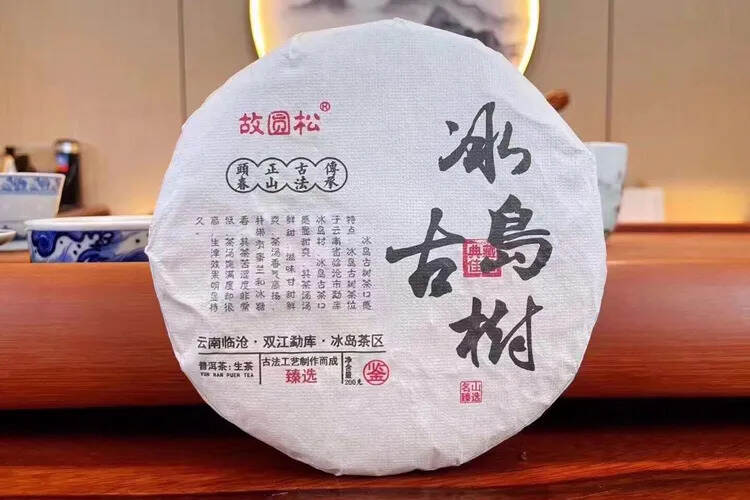 故圆松®
頭春 正山 古法 傳承
冰岛古树茶口感
特点：冰岛古树茶位
于云南省临沧市勐库
冰岛村，冰岛古茶口
感显甜爽，其茶汤
鲜甜，滋味甘甜鲜
爽，茶汤香气高扬，
有蜜兰和冰糖
香，其茶苦涩度非常
低，茶汤饱满度却很
高，生津效果明显持
久。
云南临沧·双江勐库·冰岛茶区
普洱茶：生茶
YUN NAN PUER TEA
古法工艺制作而成
臻选
净含量
200克
鉴
冰島
古樹
名山
臻选